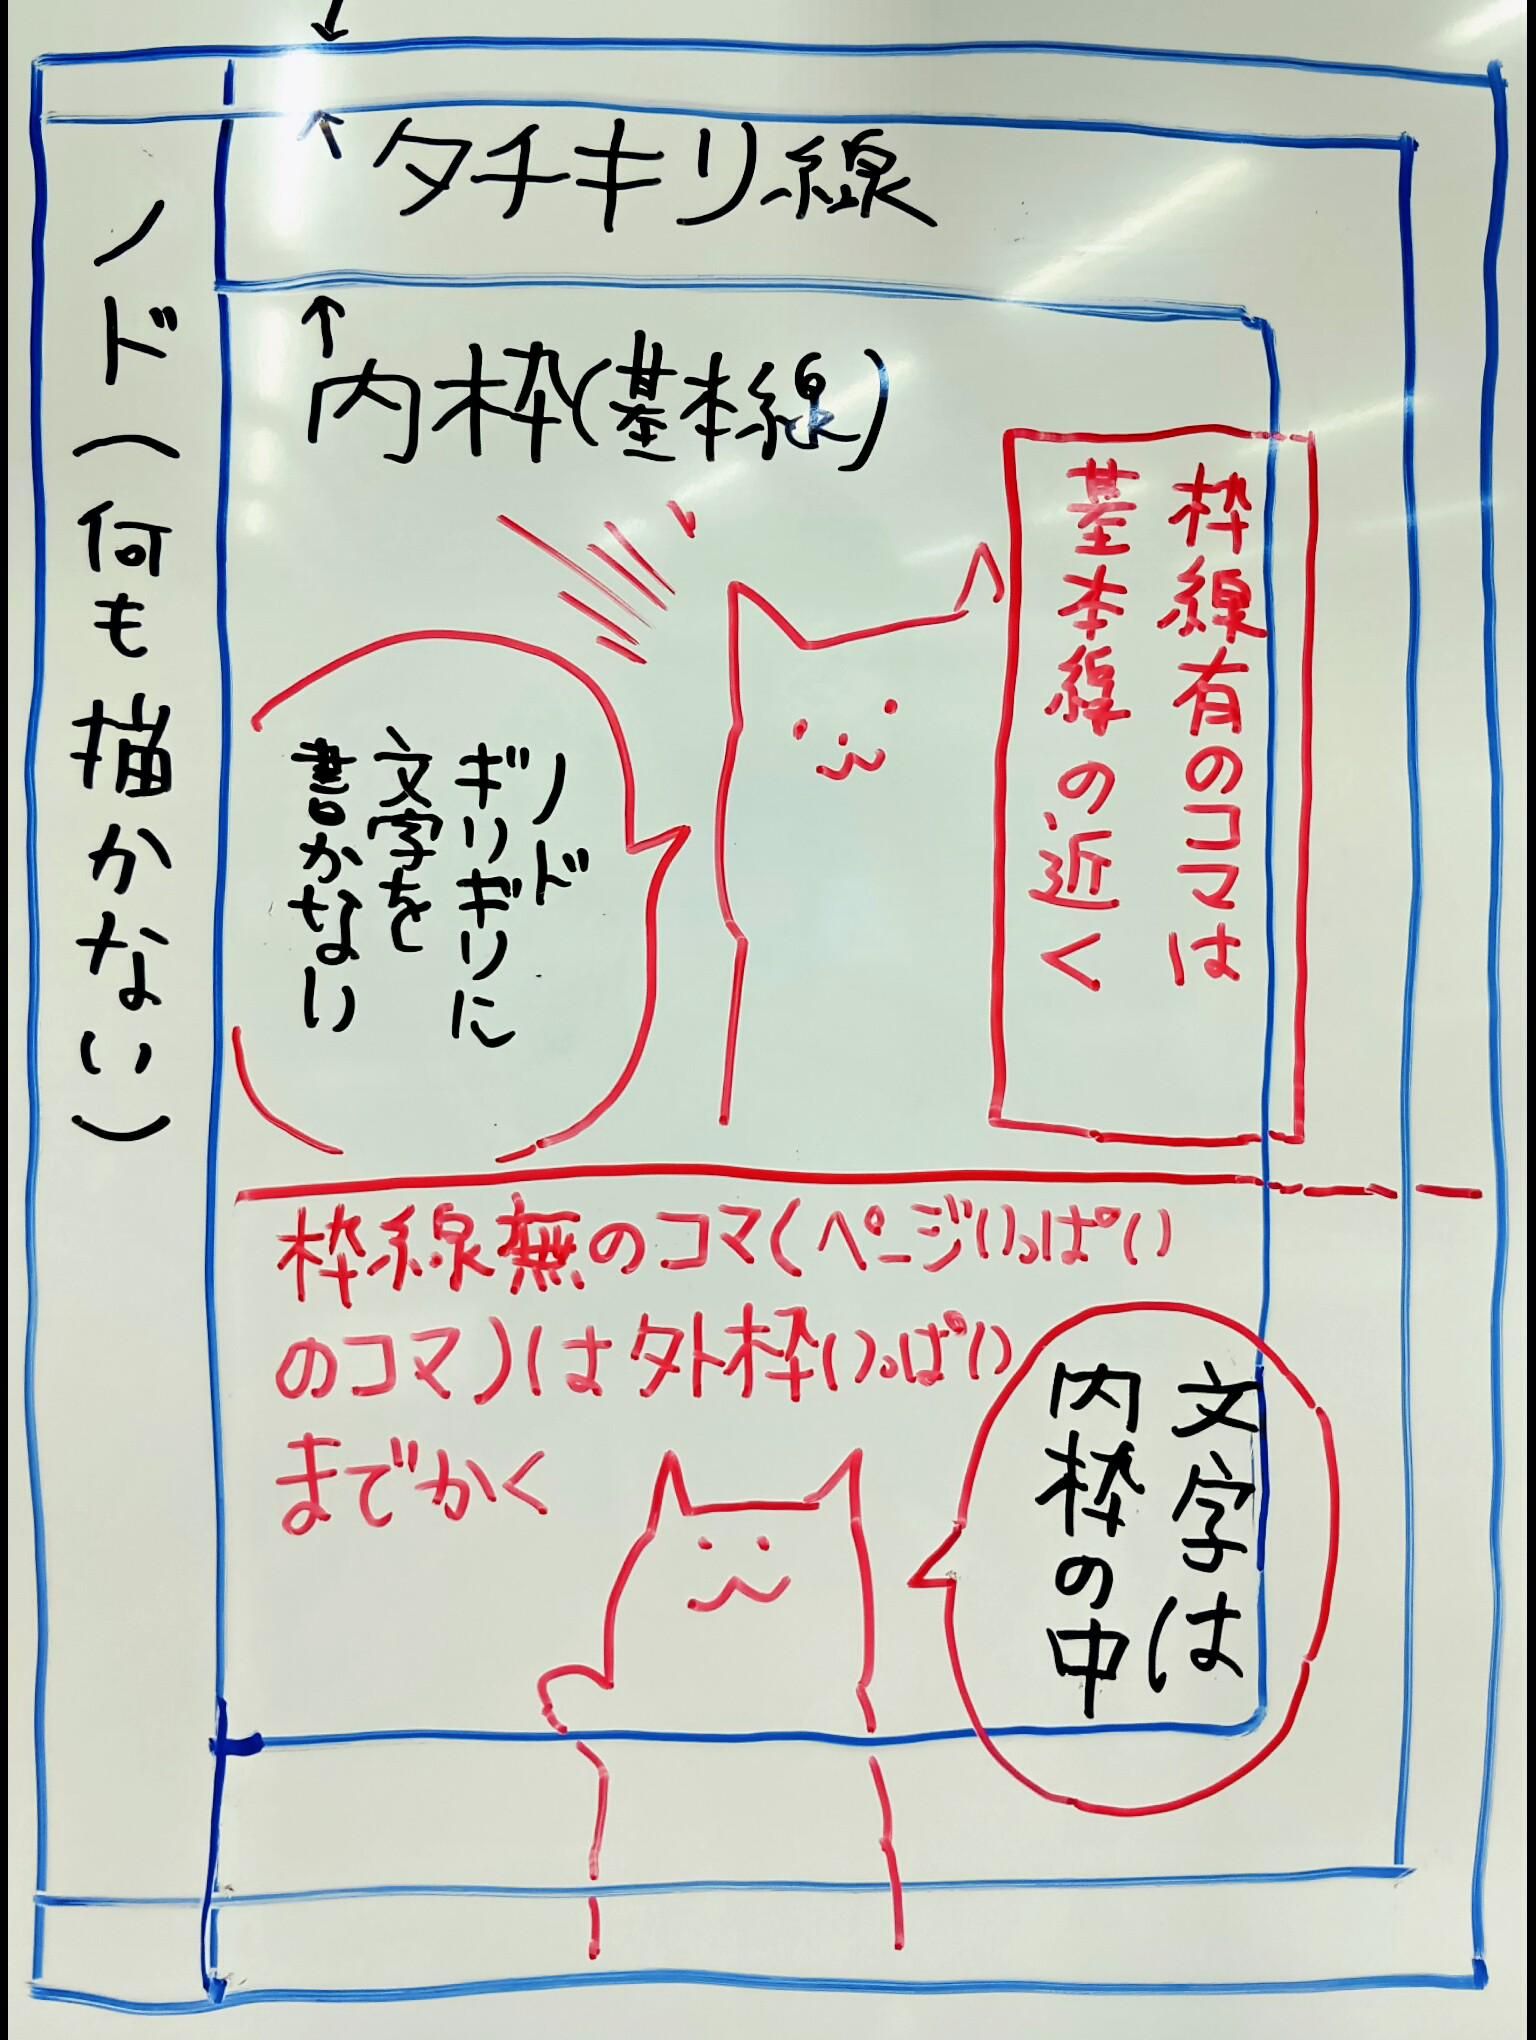 タチキリ線
内枠(基本線)
ノド(何も描かない)
枠線有のコマは
基本線の近く
ノド
ギリギリに
文字を
書かない
枠線無のコマ(ページいっぱい
のコマ)は外枠いっぱい
までかく
文字は
内枠の中